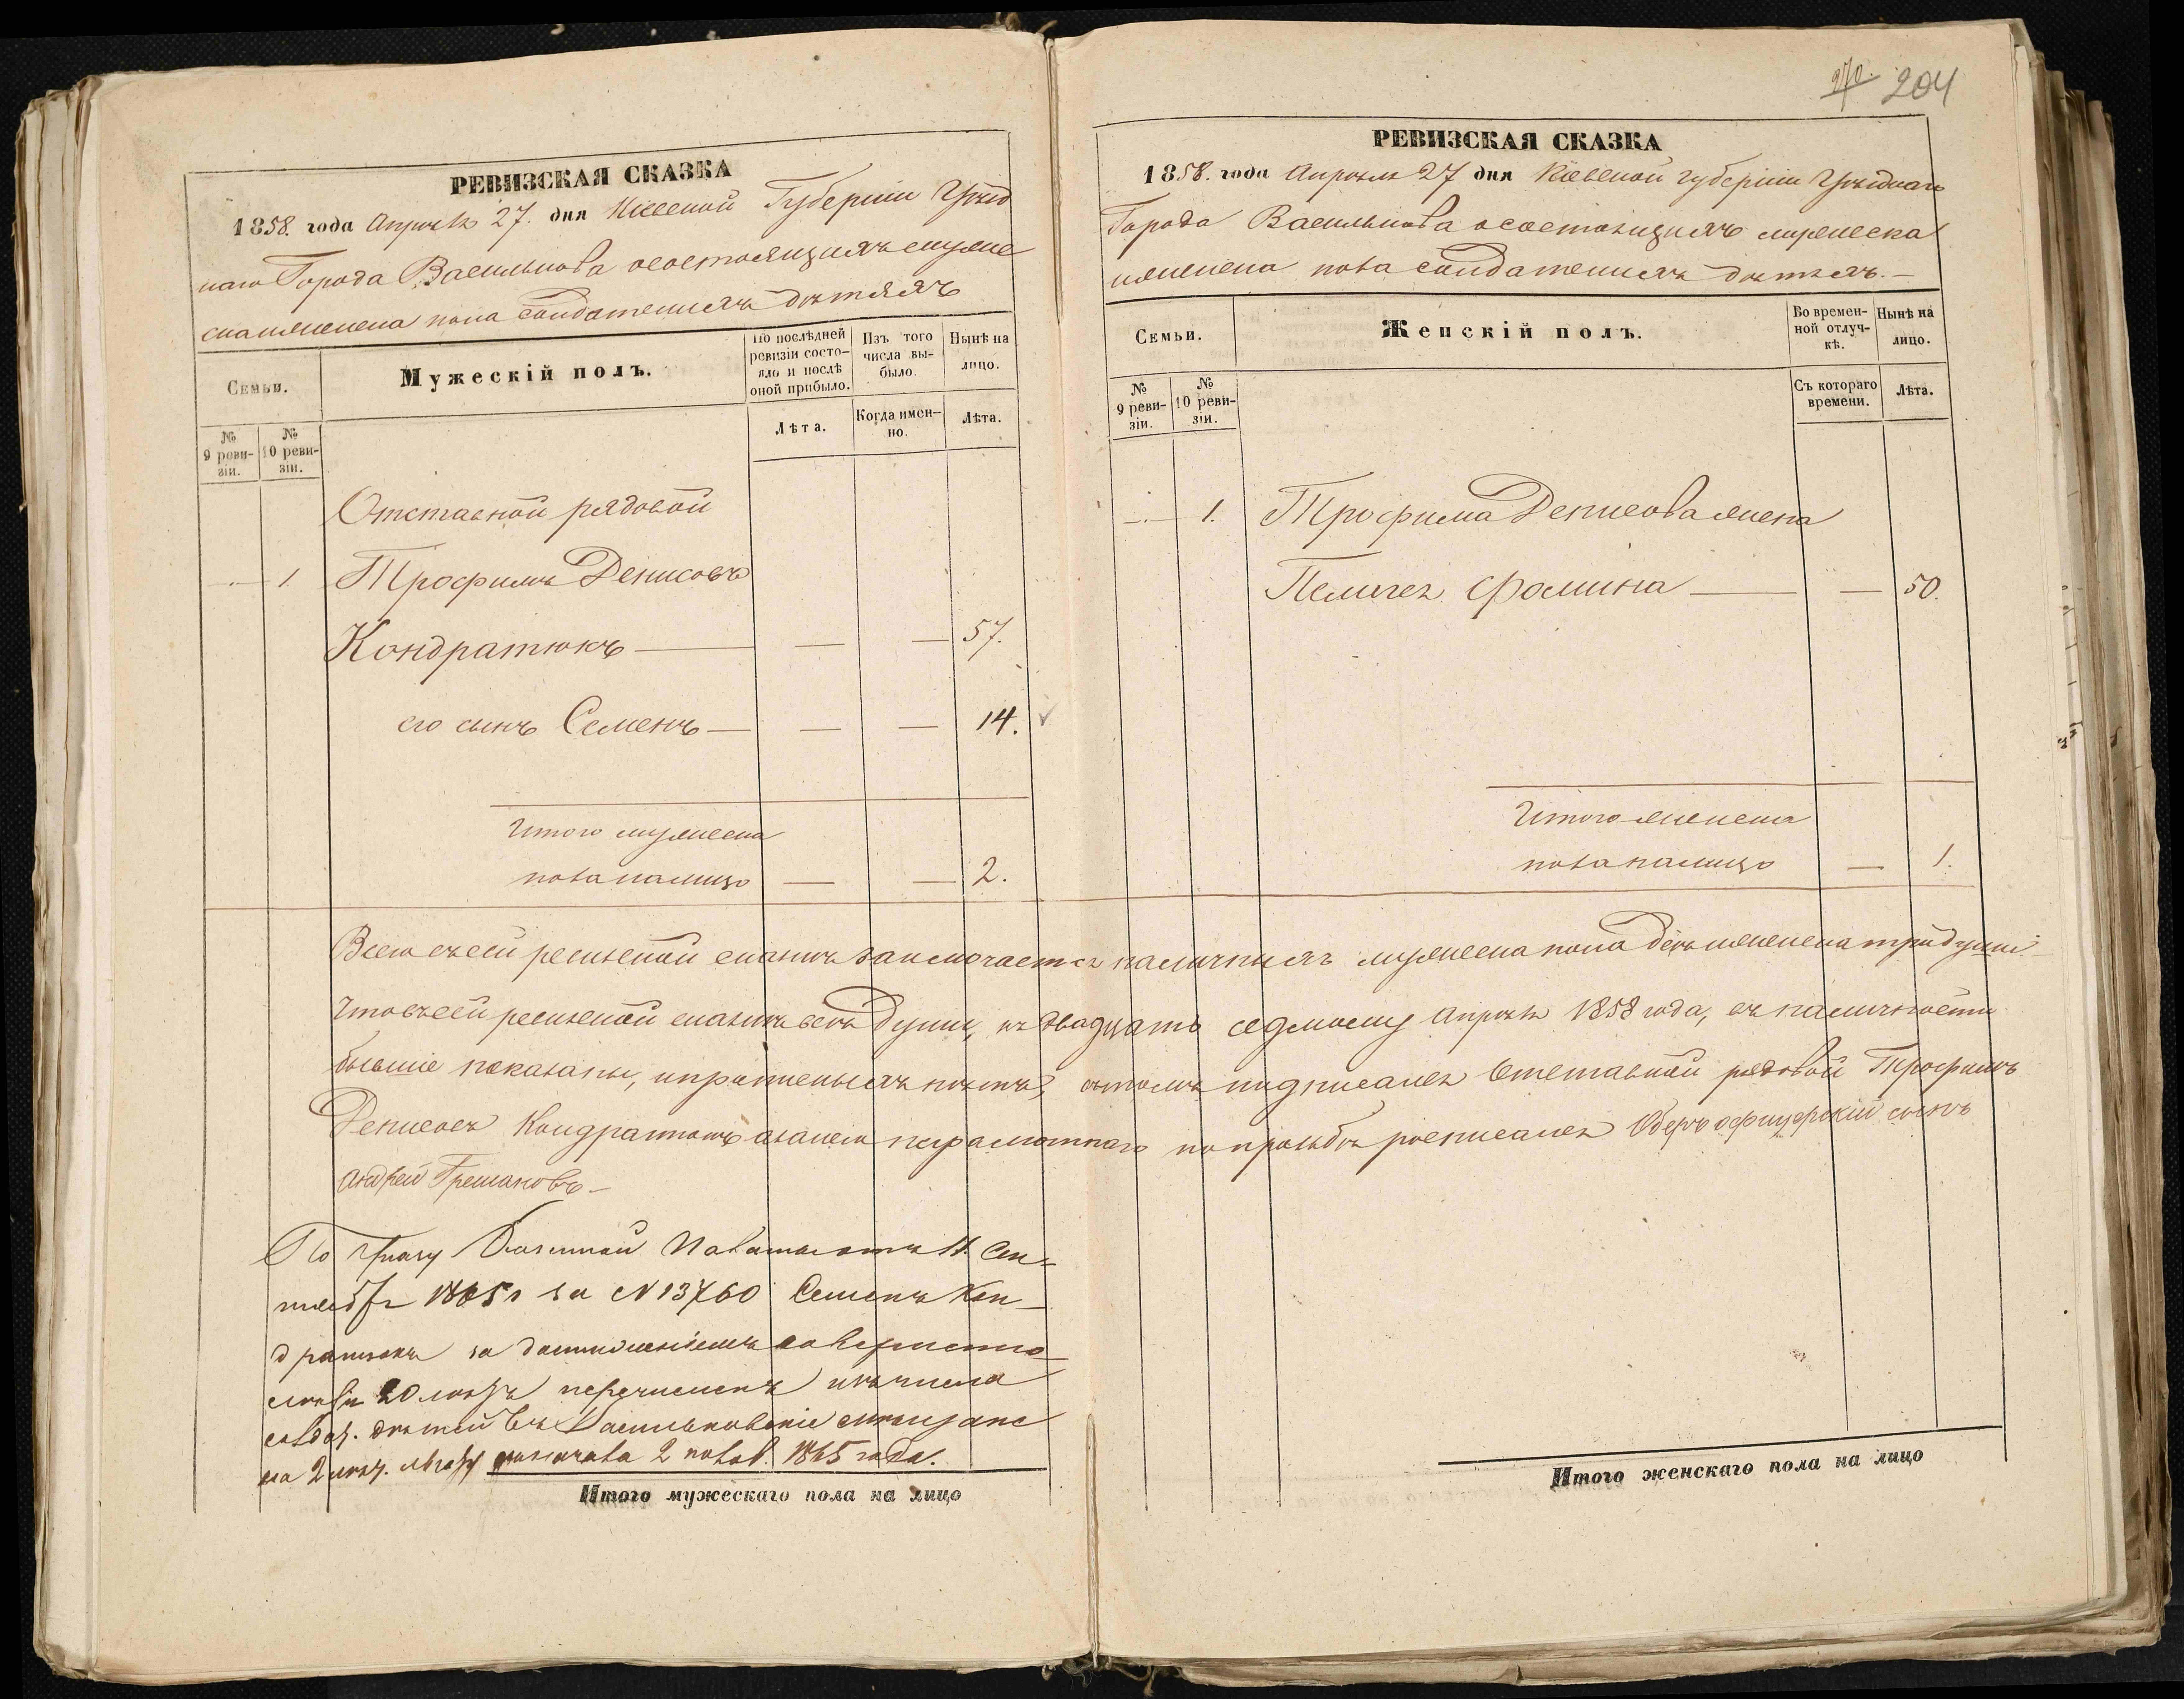 РЕВИЗСКАЯ СКАЗКА
1858. года Апрѣля 27. дня Кіевской Губерніи Уѣзд
наго Города Василькова о состоящихъ мужес
ка и женска пола солдатскихъ дѣтяхъ
Семьи.
Мужескій полъ.
По послѣдней ревизіи состо-
яло и послѣ оной прибыло.
Изъ того числа вы-
было.
Нынѣ на лицо.
№ 9 реви-
зіи.
№ 10 реви-
зіи.
Лѣта.
Когда имен-
но.
Лѣта.
Отставной рядовой
1. Трофимъ Денисовъ
Кондратюкъ — — — 57.
его сынъ Семенъ — — — 14.
Итого мужеска
пола налицо — — 2.
270. 204
РЕВИЗСКАЯ СКАЗКА
1858. года Апрѣля 27 дня Кіевской губерніи Уѣзднаго
Города Василькова о состоящихъ мужеска
и женска пола солдатскихъ дѣтяхъ. —
Семьи.
Женскій полъ.
Во времен-
ной отлуч-
кѣ.
Нынѣ на лицо.
№ 9 реви-
зіи.
№ 10 реви-
зіи.
Съ котораго времени.
Лѣта.
1. Трофима Денисова жена
Пелагея Фомина — — 50.
Итого женска
пола налицо — 1.
Всего въ сей ревизской сказкѣ заключается наличныхъ мужеска пола двѣ и женска три души
Что въ сей ревизской сказкѣ всѣ Души, къ двадцать седмому Апрѣля 1858 года, въ наличности
бывшіе показаны, и прописныхъ нѣтъ, въ томъ подписался Отставной рядовой Трофимъ
Денисовъ Кондратюкъ а за него неграмотнаго по прозьбѣ росписался Оберъ офицерскій сынъ
Андрей
По Указу Казенной Палаты отъ 11. Сен-
тября 1865 г за N 13760 Семенъ Кон-
дратюкъ за достиженіемъ совершенно
лѣтія 20 лѣтъ перечисленъ изъ числа
солдат. дѣтей въ Васильковскіе мѣщане
на 2 полов. 1865 года.
Итого мужескаго пола на лицо
Итого женскаго пола на лицо